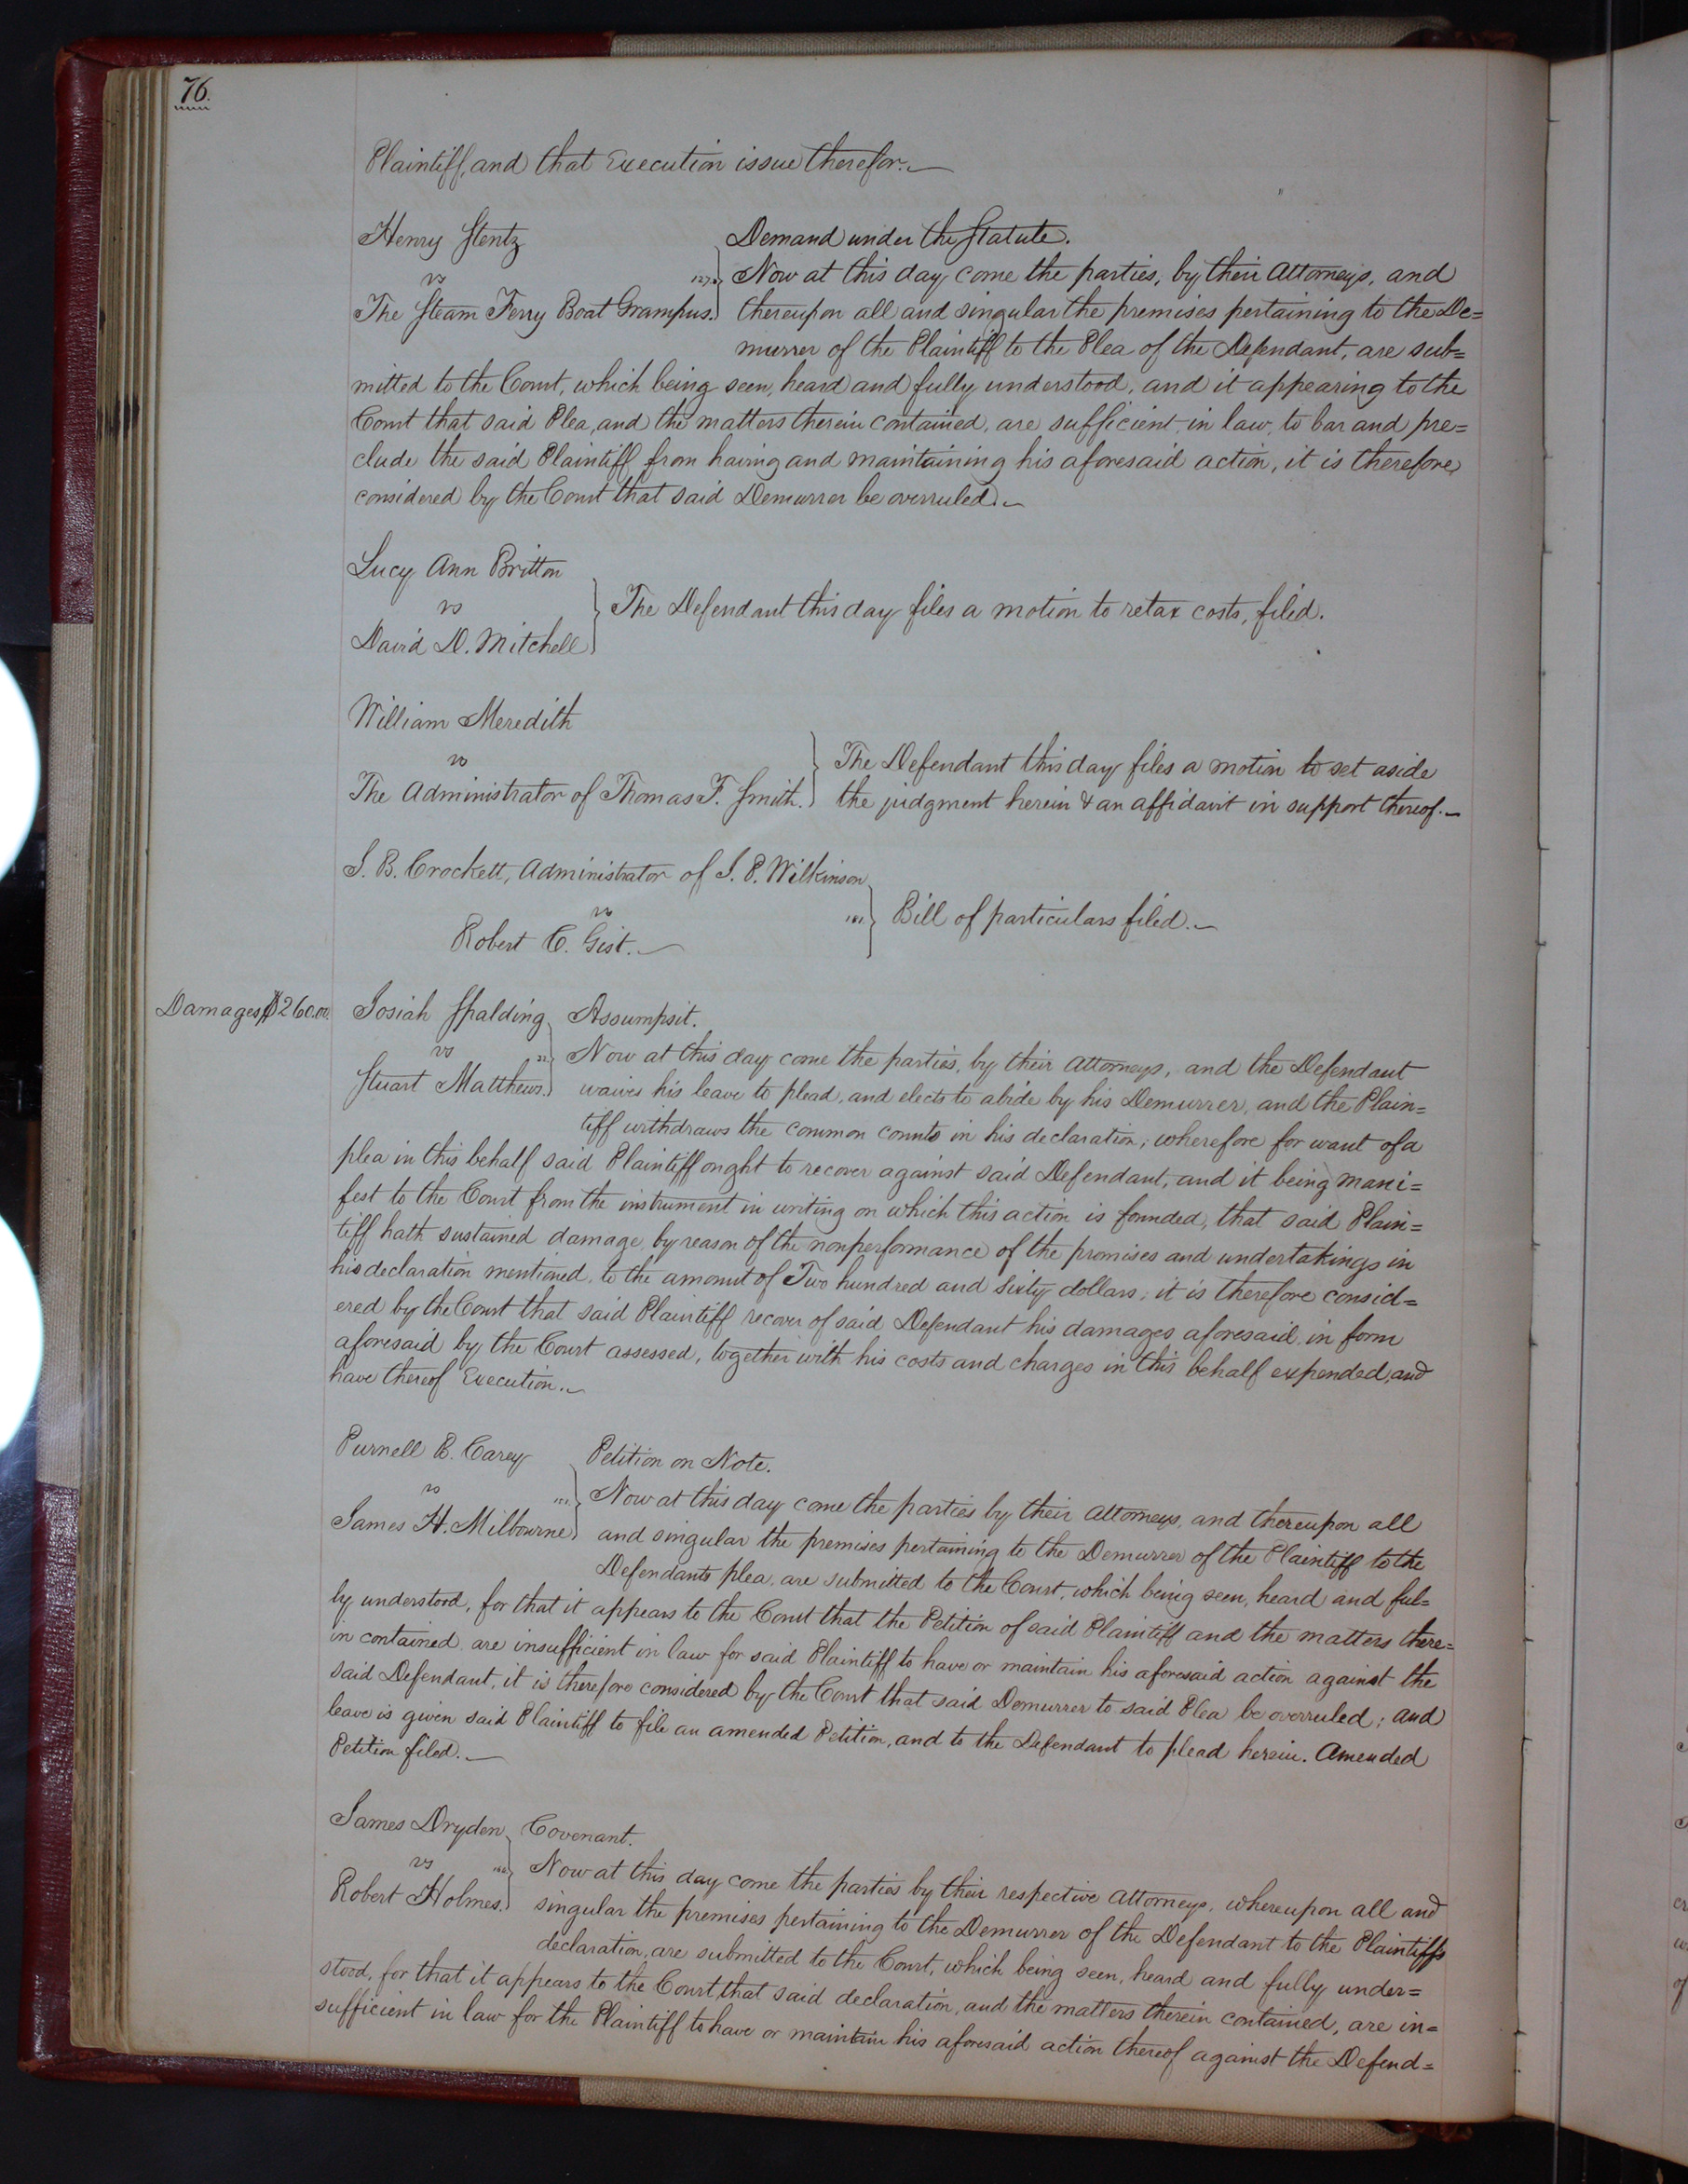 76.
Plaintiff, and that Execution issue therefor.
Henry Stentz
vs
The Steam Ferry Boat Grampus.
127.
Demand under the Statute.
Now at this day come the parties, by their Attorneys, and
thereupon all and singular the premises pertaining to the De=
murrer of the Plaintiff to the Plea of the Defendant, are sub=
mitted to the Court, which being seen, heard and fully understood, and it appearing to the
Court that said Plea, and the matters therein contained, are sufficient in law, to bar and pre=
clude the said Plaintiff from having and maintaining his aforesaid action, it is therefore
considered by the Court that said Demurrer be overruled.
Lucy Ann Britton
vs
David D. Mitchell
The Defendant this day files a motion to retax costs, filed.
William Meredith
vs
The Administrator of Thomas F. Smith.
The Defendant this day files a motion to set aside
the judgment herein & an affidavit in support thereof.
J. B. Crockett, Administrator of J. P. Wilkinson
vs
Robert C. Gist.
Bill of particulars filed.
Damages, $260.00.
Josiah Spalding
vs
Stuart Matthews.
Assumpsit.
Now at this day come the parties, by their Attorneys, and the Defendant
waives his leave to plead, and elects to abide by his Demurrer, and the Plain=
tiff withdraws the common counts in his declaration; wherefore for want of a
plea in this behalf said Plaintiff ought to recover against said Defendant, and it being mani=
fest to the Court from the instrument in writing on which this action is founded, that said Plain=
tiff hath sustained damage by reason of the nonperformance of the promises and undertakings in
his declaration mentioned, to the amount of Two hundred and sixty dollars; it is therefore consid=
ered by the Court that said Plaintiff recover of said Defendant his damages aforesaid in form
aforesaid by the Court assessed, together with his costs and charges in this behalf expended, and
have thereof Execution.
Purnell B. Carey
vs
James H. Milbourne
Petition on Note.
Now at this day come the parties by their Attorneys, and thereupon all
and singular the premises pertaining to the Demurrer of the Plaintiff to the
Defendants plea, are submitted to the Court, which being seen, heard and ful=
ly understood, for that it appears to the Court that the Petition of said Plaintiff and the matters there=
in contained are insufficient in law for said Plaintiff to have or maintain his aforesaid action against the
said Defendant, it is therefore considered by the Court that said Demurrer to said Plea be overruled; and
leave is given said Plaintiff to file an amended Petition, and to the Defendant to plead herein. Amended
Petition filed.
James Dryden
vs
Robert Holmes.
Covenant.
Now at this day come the parties by their respective Attorneys, whereupon all and
singular the premises pertaining to the Demurrer of the Defendant to the Plaintiffs
declaration, are submitted to the Court, which being seen, heard and fully under=
stood, for that it appears to the Court, that said declaration, and the matters therein contained, are in=
sufficient in law for the Plaintiff to have or maintain his aforesaid action thereof against the Defend=